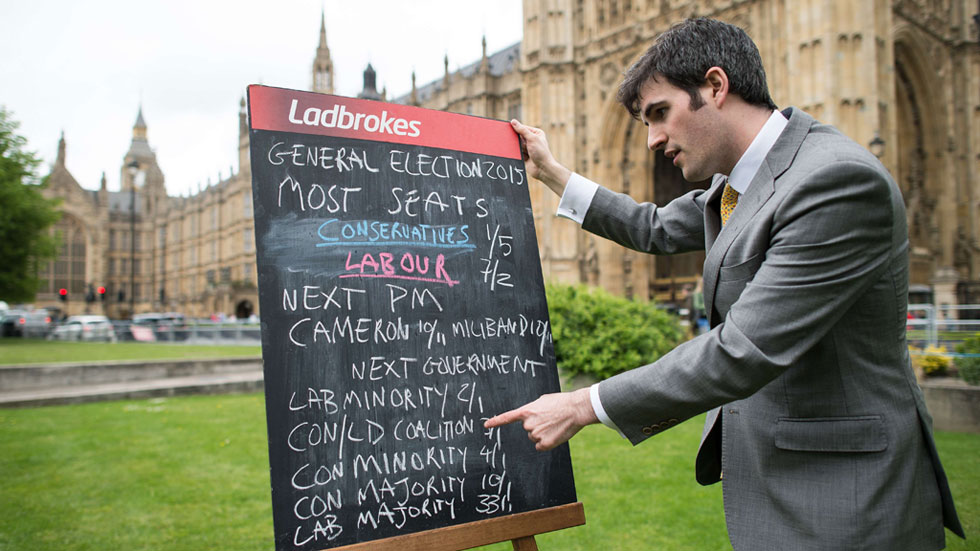 Ladbrokes
GENERAL ELECTION 2015
MOST SEATS
CONSERVATIVES 1/5
LABOUR 7/2
NEXT PM
CAMERON MILIBAND
NEXT GOVERNMENT
LAB MINORITY 2/1
CON/LD COALITION
CON MINORITY 4/1
CON MAJORITY 10/1
LAB MAJORITY 33/1